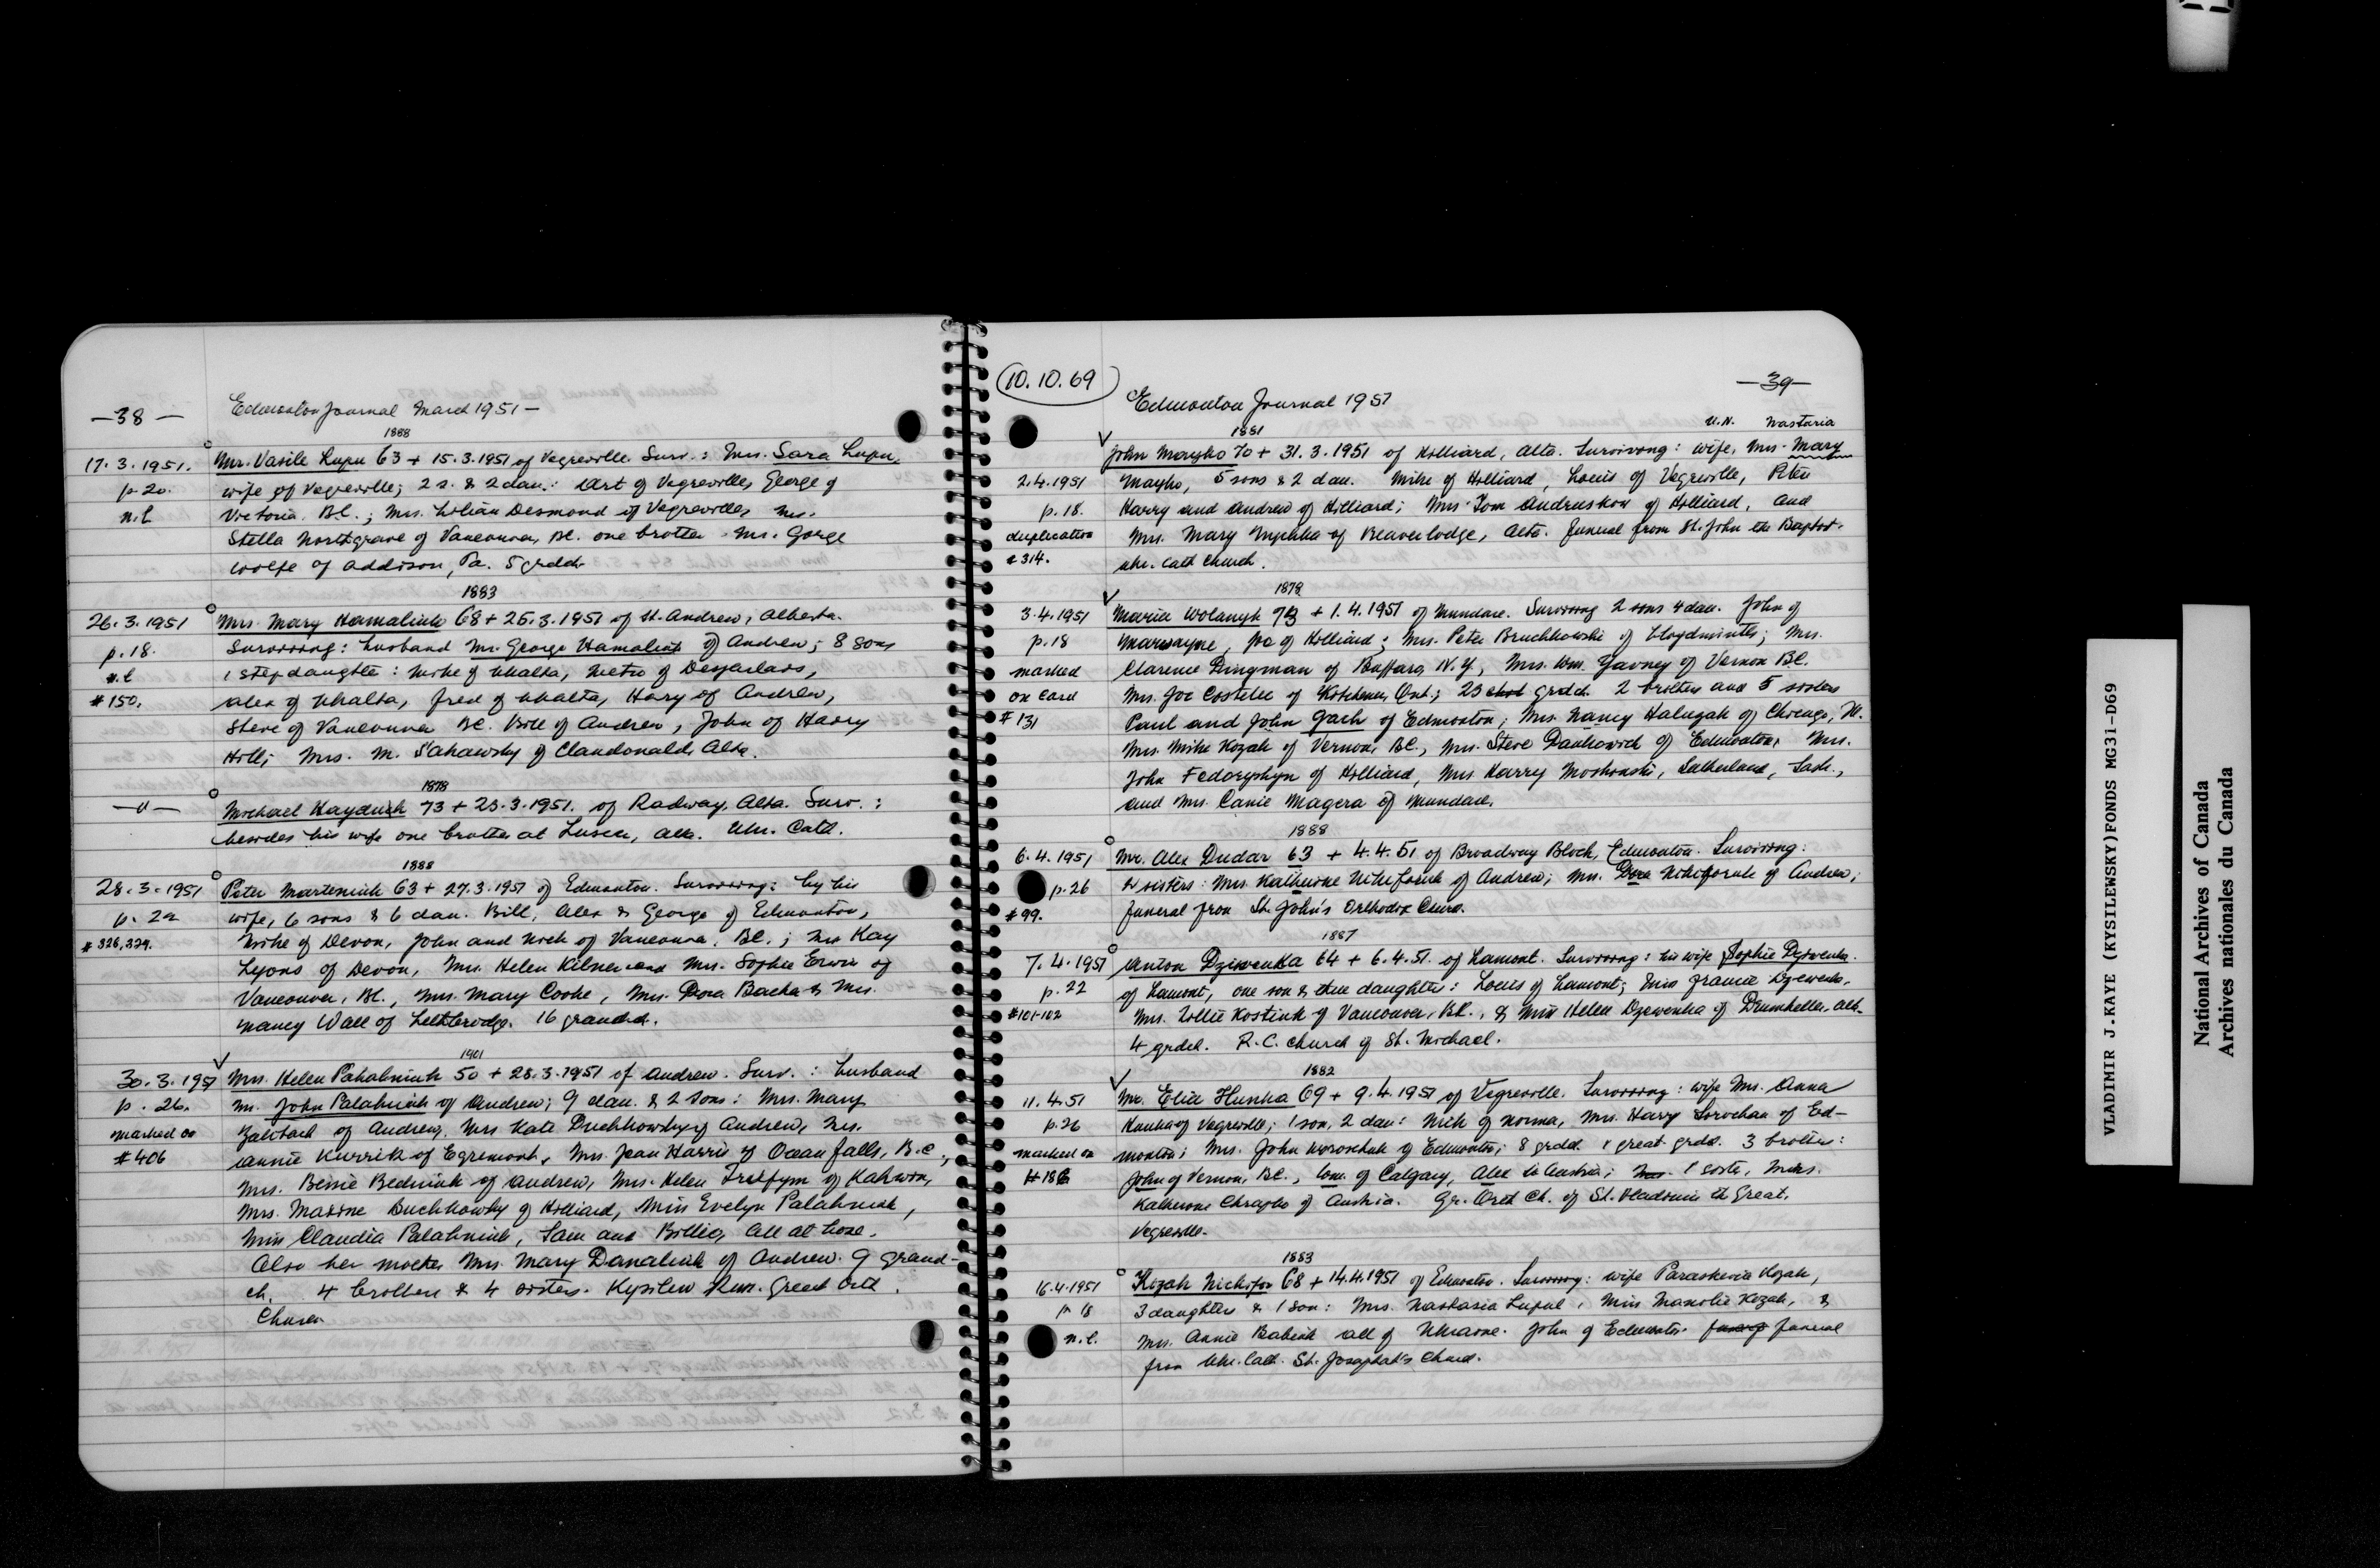 —38—
Edmonton Journal March 1951—
1888
17.3.1951. Mr. Vasile Lupu 63 + 15.3.1951 of Vegreville. Surv.: Mrs. Sara Lupu,
p. 20. wife of Vegreville; 2 s. & 2 dau.: Art of Vegreville, George of
n.l. Victoria. BC.; Mrs. Lilian Desmond of Vegreville, Mrs.
Stella Northgrave of Vancouver, BC. one brother Mr. George
Wolfe of Addison, Pa. 5 grdch.
1883
26.3.1951 Mrs. Mary Hamaliuk 68 + 25.3.1951 of St. Andrew, Alberta.
p. 18. Surviving: husband Mr. George Hamaliuk of Andrew; 8 sons
n.l 1 stepdaughter: Mike of Whalta, Metro of Desjarlais,
#150. Alex of Whalta, Fred of Whalta, Harry of Andrew,
Steve of Vancouver BC. Bill of Andrew, John of Hairy
Hill; Mrs. M. Sahawsky of Clandonald, Alta.
1878
—"— Michael Hayduk 73 + 23.3.1951. of Radway, Alta. Surv.:
besides his wife one brother at Luscar, Alta. Ukr. Cath.
1888
28.3.1951 Peter Marteniuk 63 + 27.3.1951 of Edmonton. Surviving: by his
p. 22 wife, 6 sons & 6 dau. Bill, Alex & George of Edmonton,
#326,329. Mike of Devon, John and Nick of Vancouver, BC.; Mrs Kay
Lyons of Devon, Mrs. Helen Kilner and Mrs. Sophie Erwin of
Vancouver, BC., Mrs. Mary Cooke, Mrs. Dora Backa & Mrs.
Nancy Wall of Lethbridge. 16 grandch.
1901
30.3.1951 Mrs. Helen Palahniuk 50 + 28.3.1951 of Andrew. Surv.: husband
p. 26. Mr. John Palahniuk of Andrew; 9 dau. & 2 sons: Mrs. Mary
marked on Zalitach of Andrew, Mrs Kate Duchkowsky of Andrew, Mrs.
#406 Annie Kurrik of Egremont, Mrs. Jean Harris of Ocean Falls, B.C.,
Mrs. Bessie Bedniuk of Andrew, Mrs. Helen Trefym of Kahwin,
Mrs. Maxine Buchkowsky of Hilliard, Miss Evelyn Palahniuk,
Miss Claudia Palahniuk, Sam and Billie, all at home.
Also her mother Mrs. Mary Danaliuk of Andrew. 9 grand-
ch. 4 brothers & 4 sisters. Kysilew Rum. Greek Orth.
Church
10.10.69
—39—
Edmonton Journal 1951
U.N. Nastasia
1881
John Mayko 70 + 31.3.1951 of Hilliard, Alta. Surviving: wife, Mrs. Mary
2.4.1951 Mayko, 5 sons & 2 dau. Mike of Hilliard, Louis of Vegreville, Peter
p. 18. Harry and Andrew of Hilliard; Mrs. Tom Andruskow of Hilliard, and
duplication Mrs. Mary Mychka of Beaverlodge, Alta. Funeral from St. John the Baptist.
#314. Ukr. Cath Church.
1878
3.4.1951 Maria Wolanyk 73 + 1.4.1951 of Mundare. Surviving 2 sons 4 dau. John of
p. 18 Marwayne, of Hilliard; Mrs. Peter Bruchkowski of Lloydminster; Mrs.
marked Clarence Dingman of Buffaro, N.Y., Mrs. Wm. Yavney of Vernon BC.
on card Mrs. Joe Costelec of Kitchener, Ont.; 23 grdch. 2 brothers and 5 sisters
#131 Paul and John Gach of Edmonton; Mrs. Nancy Haluzak of Chicago, Ill.
Mrs. Mike Kozak of Vernon, BC., Mrs. Steve Dankowich of Edmonton, Mrs.
John Fedoryshyn of Hilliard, Mrs. Harry Moskowski, Sutherland, Sask.,
and Mrs. Canie Magera of Mundare.
1888
6.4.1951 Mr. Alex Dudar 63 + 4.4.51 of Broadway Block, Edmonton. Surviving:
p. 26 2 sisters: Mrs. Katherine Nikiforuk of Andrew; Mrs. Dora Nikiforuk of Andrew;
#99. funeral from St. John's Orthodox Church.
1887
7.4.1951 Anton Dziwenka 64 + 6.4.51. of Lamont. Surviving: his wife Sophie Dziwenka.
p. 22 of Lamont, one son & three daughters: Louis of Lamont; Miss Francie Dzewenka,
#101-102 Mrs. Lillie Kostiuk of Vancouver, BC., & Miss Helen Dzewenka of Drumheller, Alta.
4 grdch. R.C. church of St. Michael.
1882
11.4.51 Mr. Elia Hunka 69 + 9.4.1951 of Vegreville. Surviving: wife Mrs. Anna
p. 26 Hunka of Vegreville; 1 son, 2 dau: Nick of Norma, Mrs. Harry Sorochan of Ed-
marked on monton; Mrs. John Woroschuk of Edmonton; 8 grdch. 1 great grdch. 3 brothers:
#186 John of Vernon, BC., Wm. of Calgary, Alex in Austria; 1 sister, Mrs.
Katherine Chrapko of Austria. Gr. Orth Ch. of St. Vladimir the Great,
Vegreville.
1883
16.4.1951 Kozak Nichifor 68 + 14.4.1951 of Edmonton. Surviving: wife Paraskevia Kozak,
p. 18 3 daughters & 1 son: Mrs. Nastasia Lupul, Miss Manolie Kozak, &
n.l. Mrs. Annie Babiuk all of Ukraine. John of Edmonton. funeral
from Ukr. Cath. St. Josaphat's Church.
VLADIMIR J.KAYE (KYSILEWSKY)FONDS MG31-D69
National Archives of Canada
Archives nationales du Canada